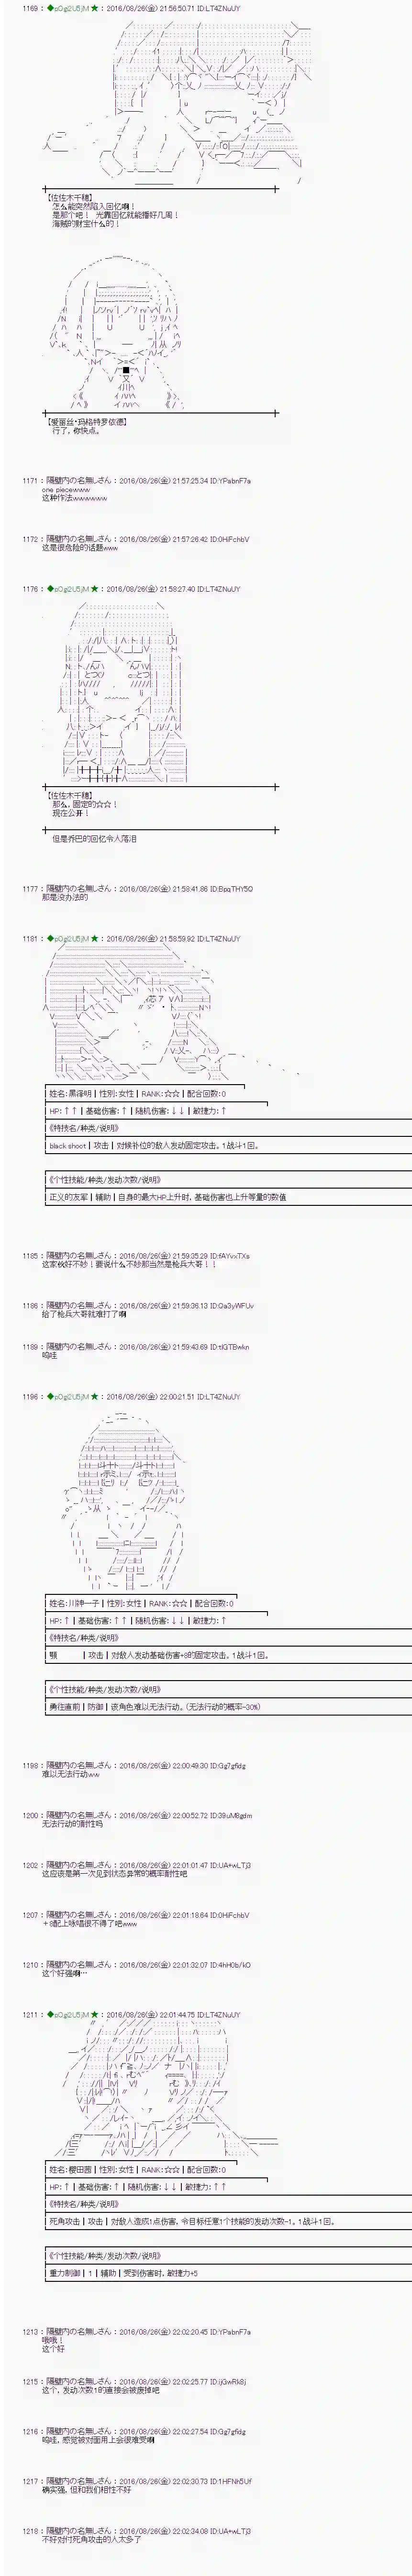 1169 : ◆pOgi2U5jM ★ : 2016/08/26(金) 21:56:50.71 ID:LT4ZNuUY
【佐佐木千穗】
怎么能突然陷入回忆啊！
是那个吧！ 光靠回忆就能播好几周！
海贼的财宝什么的！
【爱丽丝·玛格特罗依德】
行了，你快点。
1171 : 隔壁内の名無しさん : 2016/08/26(金) 21:57:25.34 ID:YPabnF7a
one piecewww
这种作法wwwwww
1172 : 隔壁内の名無しさん : 2016/08/26(金) 21:57:26.42 ID:0HiFchbV
这是很危险的话题www
1176 : ◆pOgi2U5jM ★ : 2016/08/26(金) 21:58:27.40 ID:LT4ZNuUY
【佐佐木千穗】
那么，固定的☆☆！
现在公开！
但是乔巴的回忆令人落泪
1177 : 隔壁内の名無しさん : 2016/08/26(金) 21:58:41.86 ID:BpqTHY5O
那是没办法的
1181 : ◆pOgi2U5jM ★ : 2016/08/26(金) 21:58:59.92 ID:LT4ZNuUY
姓名:黑泽明 | 性别:女性 | RANK:☆☆ | 配合回数:0
HP:↑↑ | 基础伤害:↑ | 随机伤害:↓ | 敏捷力:↑
《特技名/种类/说明》
black shoot | 攻击 | 对候补位的敌人发动固定攻击。1战斗1回。
《个性技能/种类/发动次数/说明》
正义的友军 | 辅助 | 自身的最大HP上升时，基础伤害也上升等量的数值
1185 : 隔壁内の名無しさん : 2016/08/26(金) 21:59:35.29 ID:fAYvxTXs
这家伙好不妙！要说什么不妙那当然是枪兵大哥！！
1186 : 隔壁内の名無しさん : 2016/08/26(金) 21:59:36.13 ID:Qa3yWFUv
给了枪兵大哥就难打了啊
1189 : 隔壁内の名無しさん : 2016/08/26(金) 21:59:43.69 ID:tIGTBwkn
呜哇
1196 : ◆pOgi2U5jM ★ : 2016/08/26(金) 22:00:21.51 ID:LT4ZNuUY
姓名:川神一子 | 性别:女性 | RANK:☆☆ | 配合回数:0
HP:↑ | 基础伤害:↑↑ | 随机伤害:↓↓ | 敏捷力:↑
《特技名/种类/说明》
颚 | 攻击 | 对敌人发动基础伤害+8的固定攻击。1战斗1回。
《个性技能/种类/发动次数/说明》
勇往直前 | 防御 | 该角色难以无法行动。(无法行动的概率-30%)
1199 : 隔壁内の名無しさん : 2016/08/26(金) 22:00:49.30 ID:Gg7gfidg
难以无法行动ww
1200 : 隔壁内の名無しさん : 2016/08/26(金) 22:00:52.72 ID:39uM8gdm
无法行动的耐性吗
1202 : 隔壁内の名無しさん : 2016/08/26(金) 22:01:01.47 ID:UA+wLTj3
这应该是第一次见到状态异常的概率耐性吧
1207 : 隔壁内の名無しさん : 2016/08/26(金) 22:01:18.64 ID:0HiFchbV
＋8配上咏唱很不得了吧www
1210 : 隔壁内の名無しさん : 2016/08/26(金) 22:01:32.07 ID:4hH0b/kO
这个好强啊…
1211 : ◆pOgi2U5jM ★ : 2016/08/26(金) 22:01:44.75 ID:LT4ZNuUY
姓名:樱田茜 | 性别:女性 | RANK:☆☆ | 配合回数:0
HP:↑ | 基础伤害:↑ | 随机伤害:↓ | 敏捷力:↑↑
《特技名/种类/说明》
死角攻击 | 攻击 | 对敌人造成1点伤害，令目标任意1个技能的发动次数-1。1战斗1回。
《个性技能/种类/发动次数/说明》
重力制御 | 1 | 辅助 | 受到伤害时，敏捷力+5
1213 : 隔壁内の名無しさん : 2016/08/26(金) 22:02:20.45 ID:YPabnF7a
哦哦！
这个好
1215 : 隔壁内の名無しさん : 2016/08/26(金) 22:02:25.77 ID:ijGwRk8j
这个，发动次数1的直接会被废掉吧
1216 : 隔壁内の名無しさん : 2016/08/26(金) 22:02:27.54 ID:Gg7gfidg
呜哇，感觉被对面用上会很难受啊
1217 : 隔壁内の名無しさん : 2016/08/26(金) 22:02:30.73 ID:1HFNh5Uf
确实强，但和我们相性不好
1218 : 隔壁内の名無しさん : 2016/08/26(金) 22:02:34.08 ID:UA+wLTj3
不好对付死角攻击的人太多了